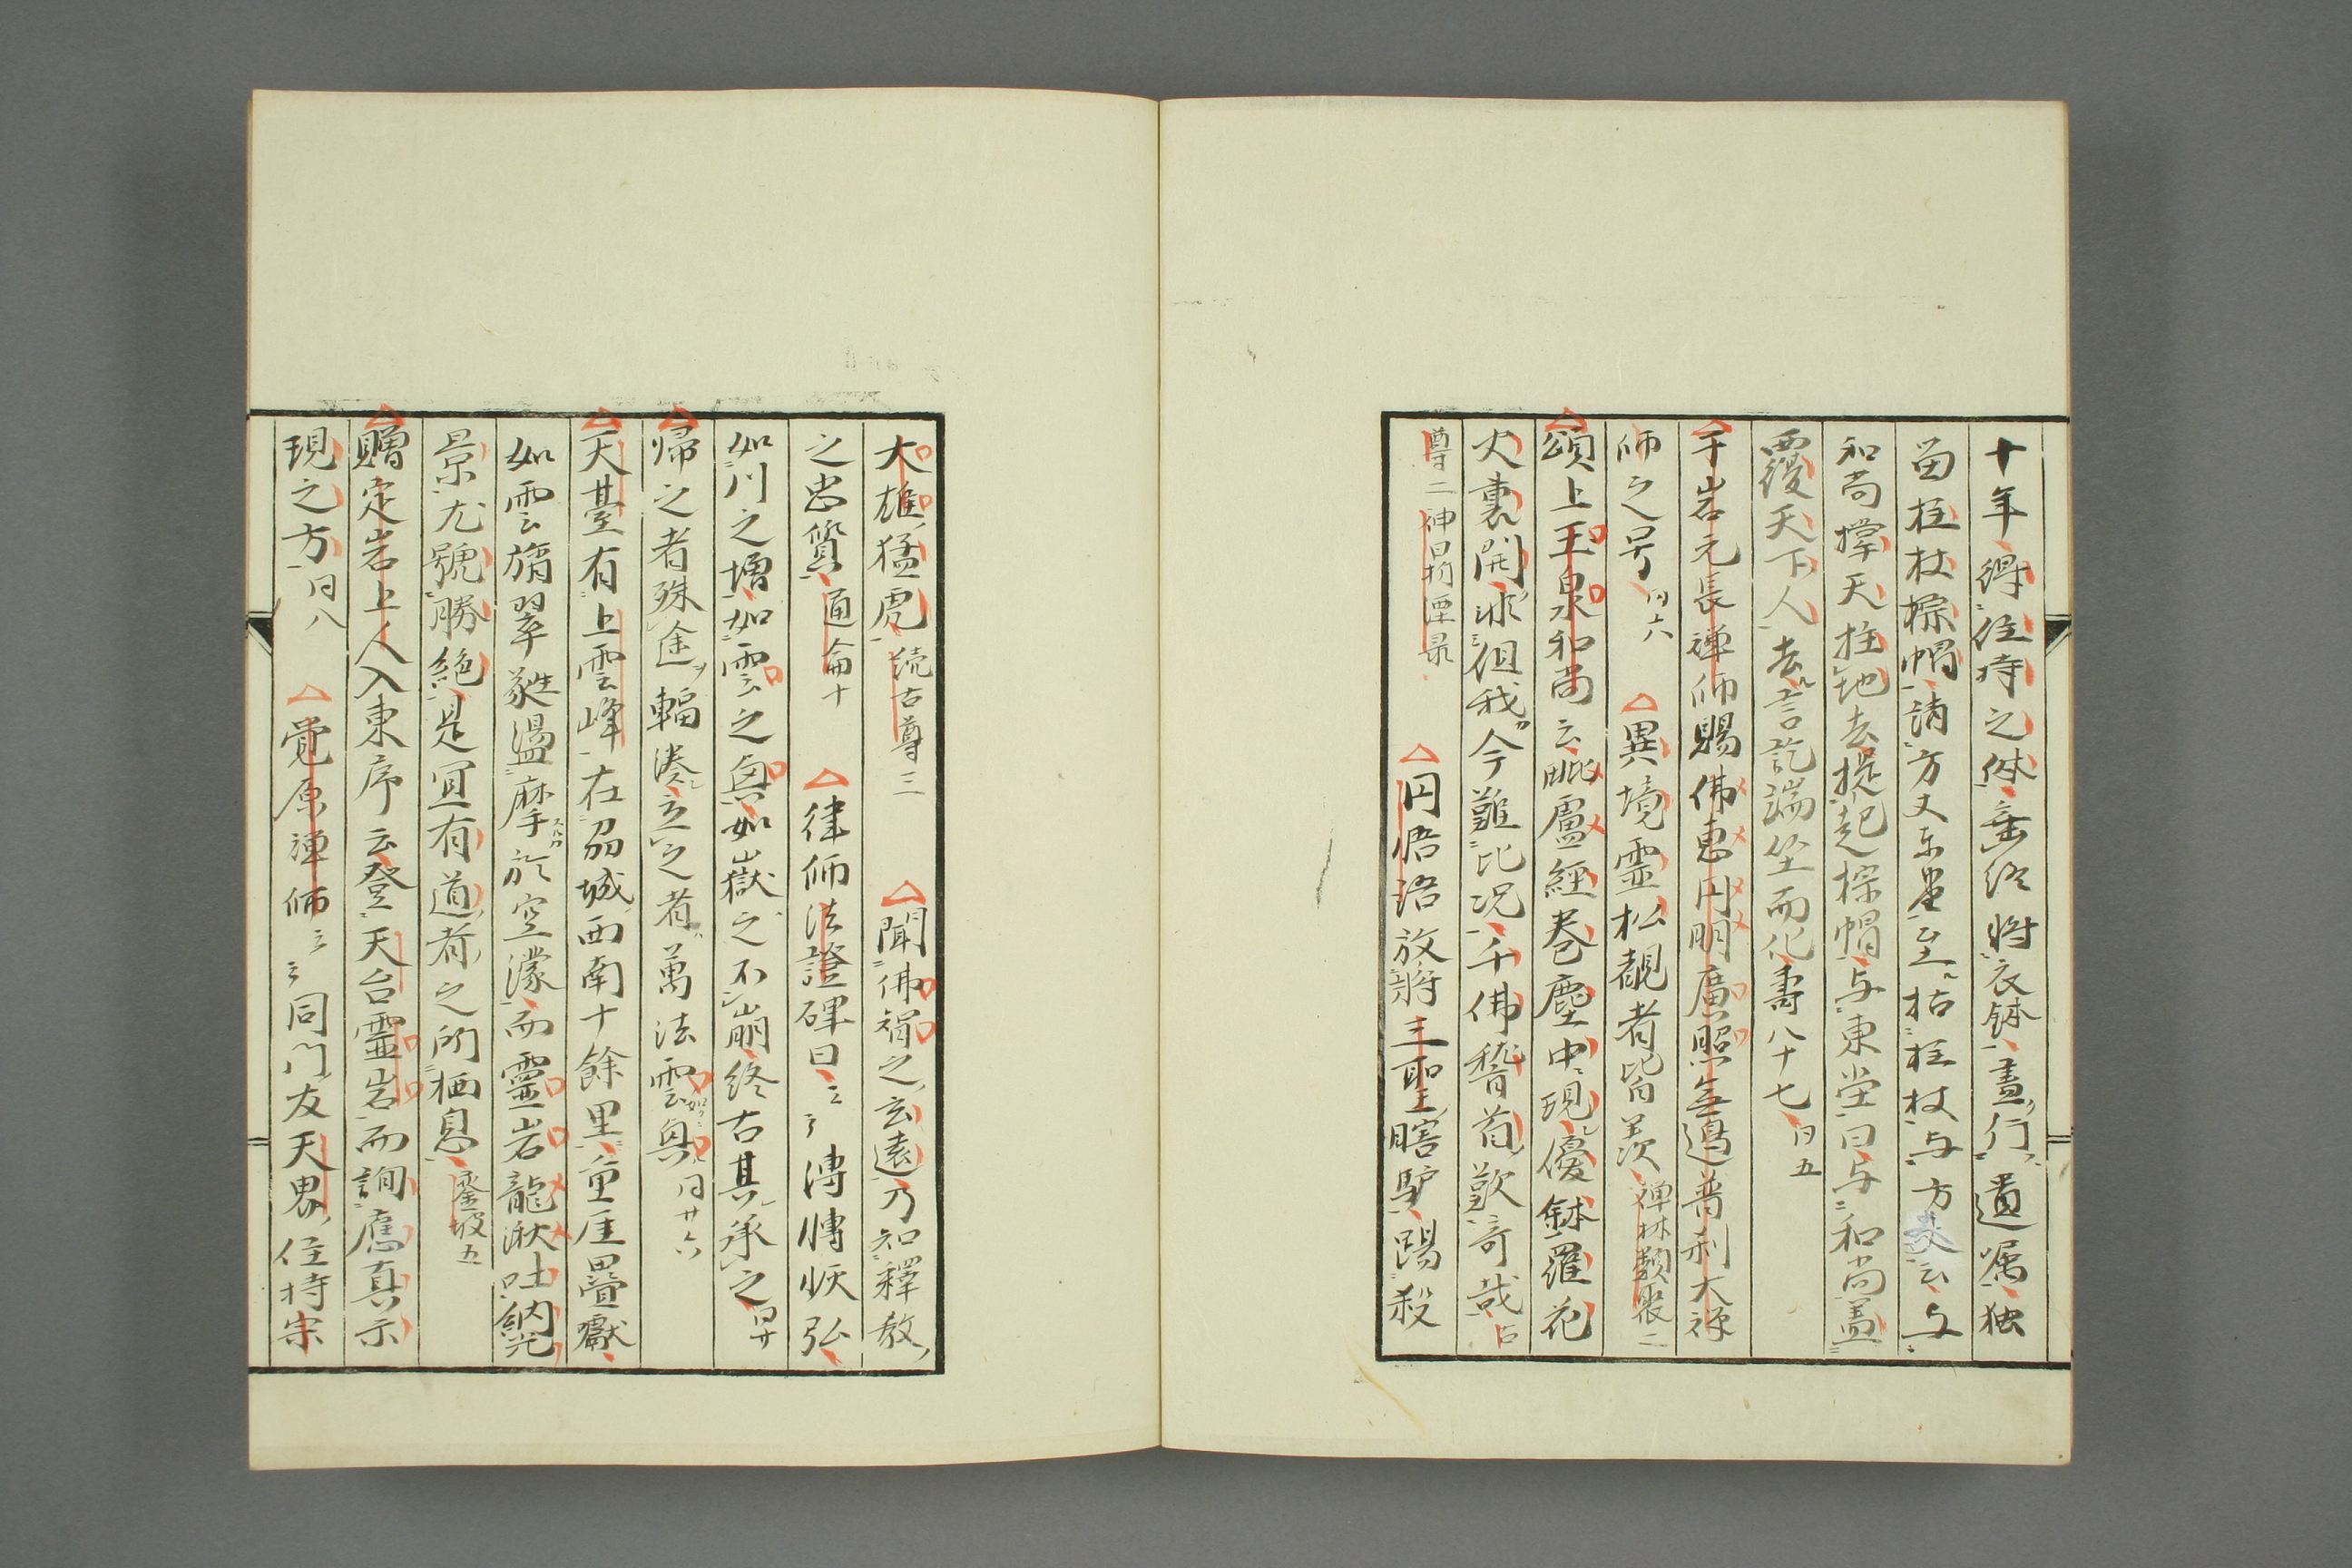 十年得住持之体垂終将衣鉢盡行遺嘱独
留拄杖棕帽請方丈東堂至拈拄杖与方丈云与
和尚撑天拄地去提起棕帽与東堂曰与和尚盖
覆天下人去言訖端坐而化壽八十七 同五
千岩元長禅師賜佛恵円明廣照無邊普利大禅
師之号 同六 異境霊松覩者皆羨 禅林類聚二
頌上玉泉和尚云毗盧經巻塵中現優鉢羅花
火裏開洣徂我今難比况千佛稽首歎奇哉 古
尊二 円悟語放将三聖瞎驢踢殺
大雄猛虎 続古尊三 聞佛禍之玄遠乃知釋教
之忠質 通侖十 律師法證碑曰云云 弘
如川之増如雲之興如嶽之不崩終古其承之 同廿
帰之者殊途輻湊立之者萬法雲興 同廿六
天臺有上雲峰在劭城西南十餘里重厓疊巘
如雲旖翠蕤盪摩於空濛而靈岩龍湫吐納光
景尤號勝絶是宜有道者之所栖息 鑾坡五
贈定岩上人入東序云登天台靈岩而詢應真示
現之方 同八 覚原禅師云云同門友天界住持宗